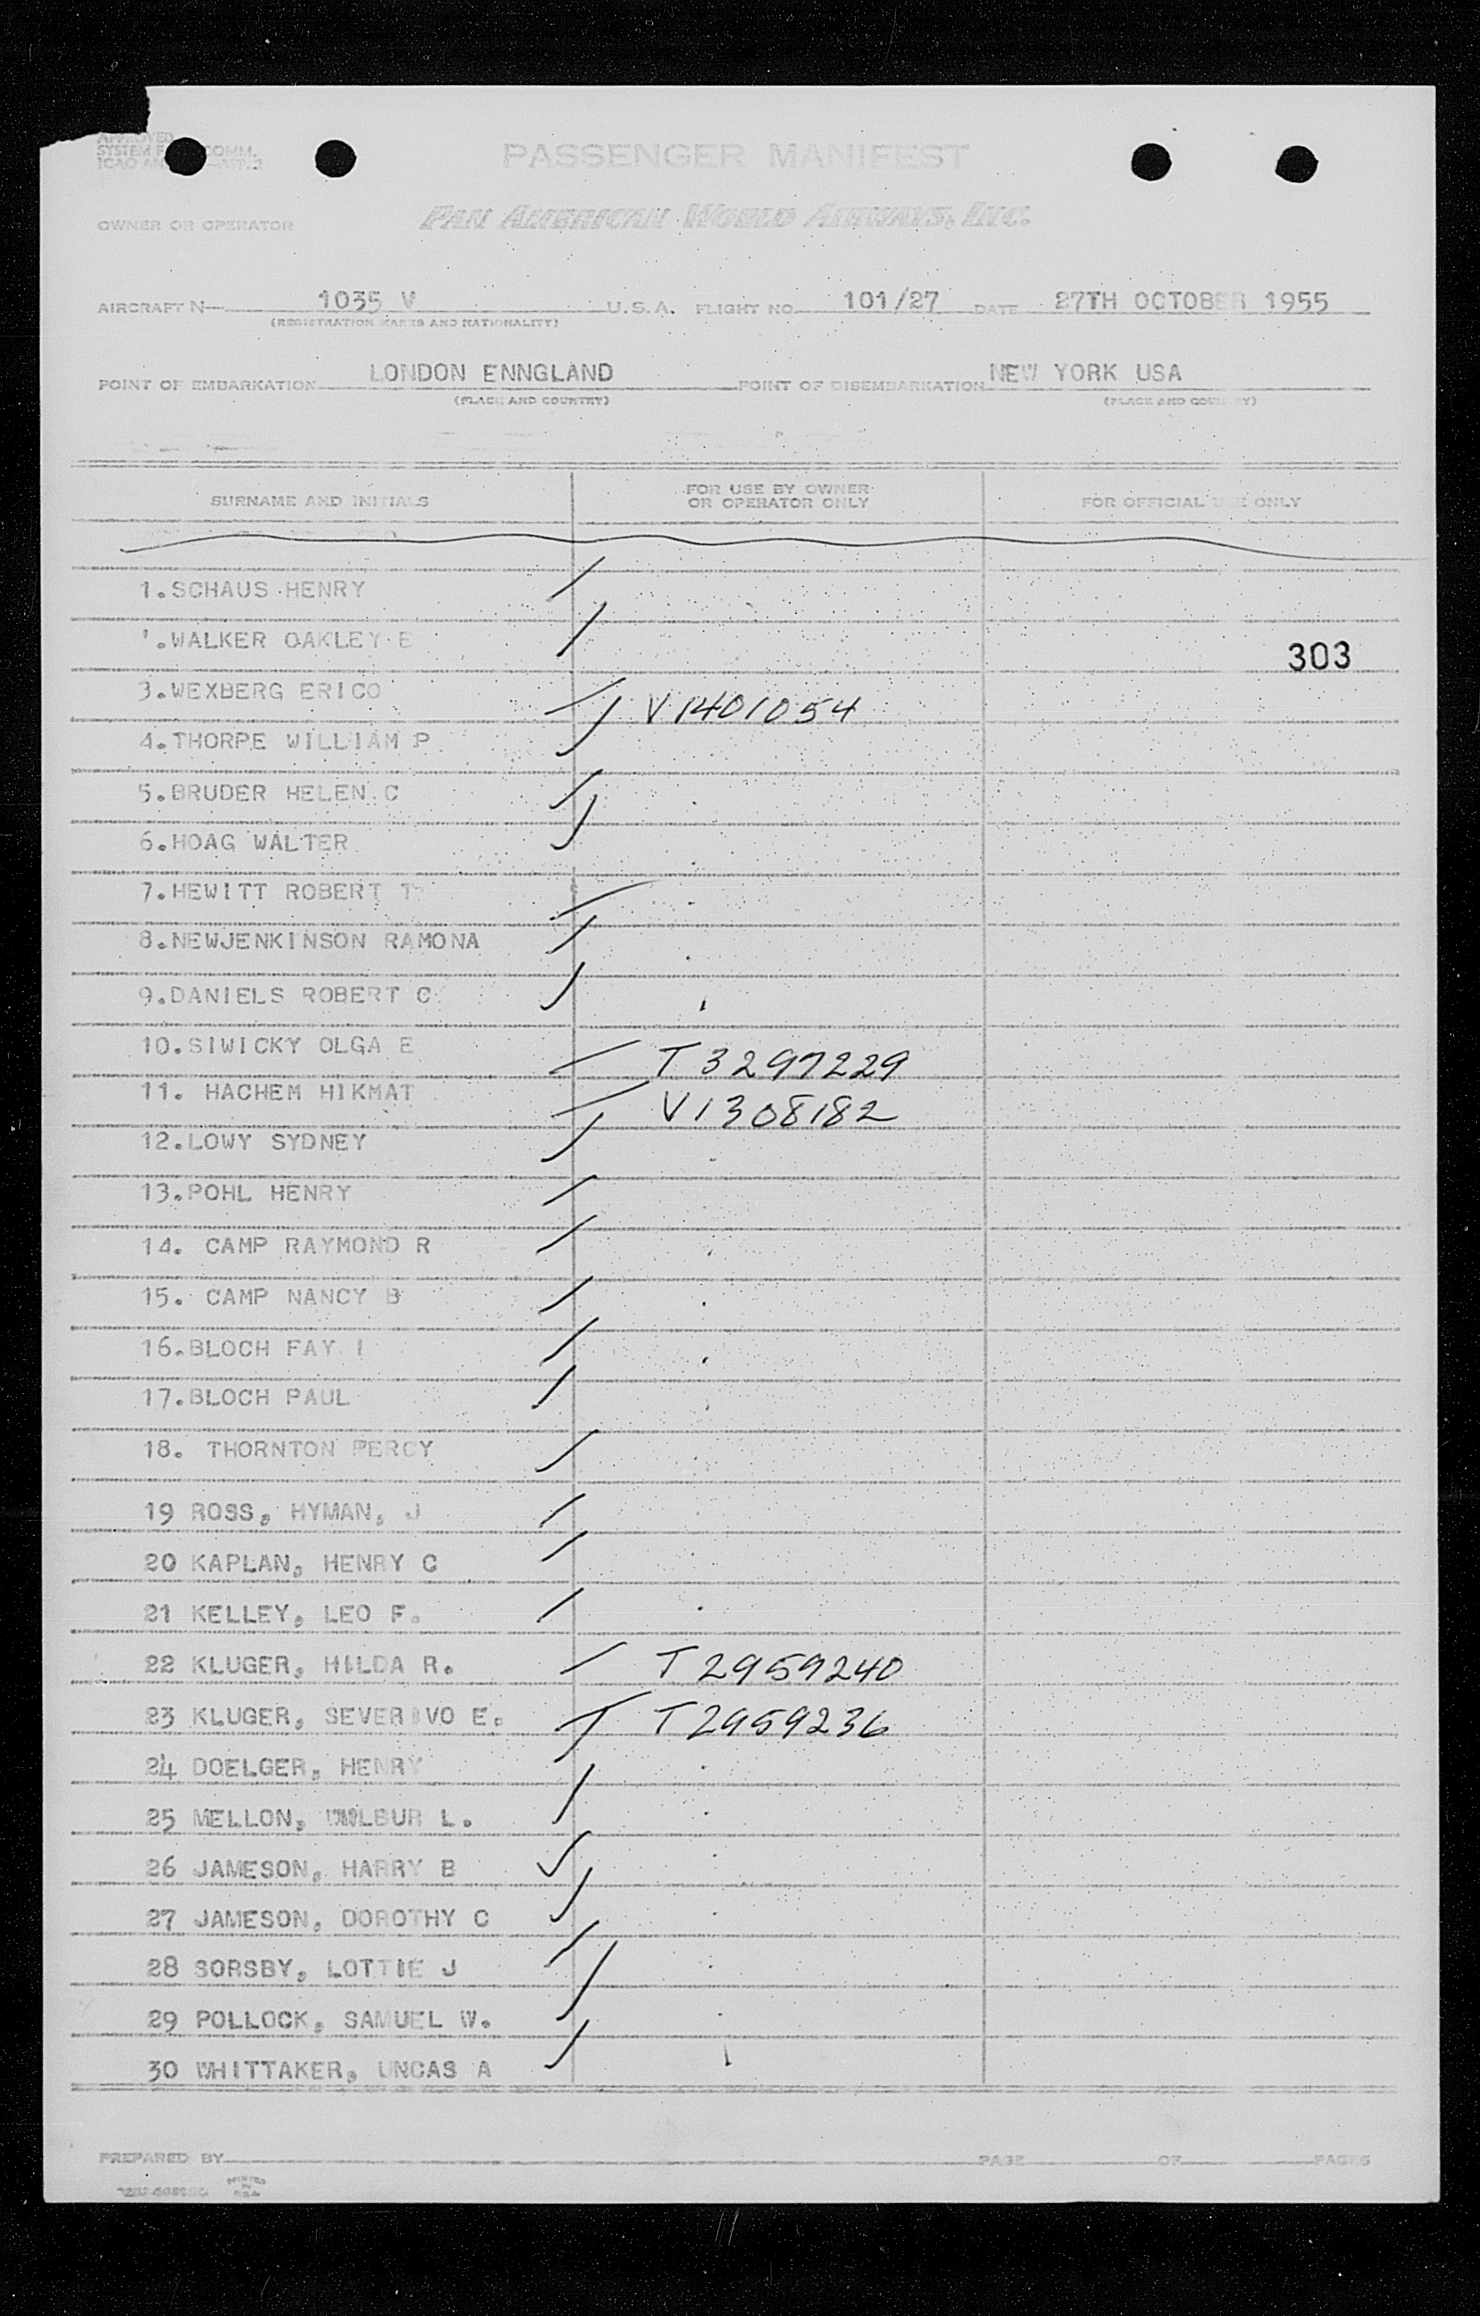 APPROVED
SYSTEM F COMM.
PASSENGER MANIFEST
OWNER OR OPERATOR PAN AMERICAN WORLD AIRWAYS, INC.
AIRCRAFT N 1035 V U.S.A. FLIGHT NO. 101/27 DATE 27TH OCTOBER 1955
(REGISTRATION MARKS AND NATIONALITY)
POINT OF EMBARKATION LONDON ENNGLAND POINT OF DISEMBARKATION NEW YORK USA
(PLACE AND COUNTRY) (PLACE AND COUNTRY)
SURNAME AND INITIALS FOR USE BY OWNER OR OPERATOR ONLY FOR OFFICIAL USE ONLY
1.SCHAUS HENRY
'.WALKER OAKLEY E
303
3.WEXBERG ERICO V1401054
4.THORPE WILLIAM P
5.BRUDER HELEN C
6.HOAG WALTER
7.HEWITT ROBERT T
8.NEWJENKINSON RAMONA
9.DANIELS ROBERT C
10.SIWICKY OLGA E T3297229
11. HACHEM HIKMAT V1308182
12.LOWY SYDNEY
13.POHL HENRY
14. CAMP RAYMOND R
15. CAMP NANCY B
16.BLOCH FAY I
17.BLOCH PAUL
18. THORNTON PERCY
19 ROSS, HYMAN, J
20 KAPLAN, HENRY C
21 KELLEY, LEO F.
22 KLUGER, HILDA R. T2959240
23 KLUGER, SEVERIVO E. T2959236
24 DOELGER, HENRY
25 MELLON, WILBUR L.
26 JAMESON, HARRY B
27 JAMESON, DOROTHY C
28 SORSBY, LOTTIE J
29 POLLOCK, SAMUEL W.
30 WHITTAKER, UNCAS A
PREPARED BY PAGE OF PAGES
PRINTED IN U.S.A.